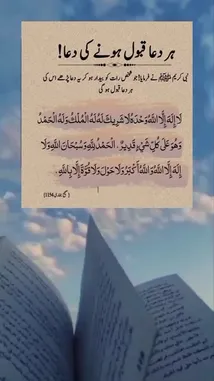 ہر دعا قبول ہونے کی دعا!
نبی کریم ﷺ نے فرمایا: جو شخص رات کو بیدار ہو کر یہ دعا پڑھے اس کی
ہر دعا قبول ہو گی
لَا إِلٰهَ إِلَّا اللّٰهُ وَحْدَهُ لَا شَرِيكَ لَهُ لَهُ الْمُلْكُ وَلَهُ الْحَمْدُ
وَهُوَ عَلَى كُلِّ شَيْءٍ قَدِيرٌ. الْحَمْدُ لِلّٰهِ وَسُبْحَانَ اللّٰهِ وَلَا
إِلٰهَ إِلَّا اللّٰهُ وَاللّٰهُ أَكْبَرُ وَلَا حَوْلَ وَلَا قُوَّةَ إِلَّا بِاللّٰهِ.
(صحیح بخاری 1154)